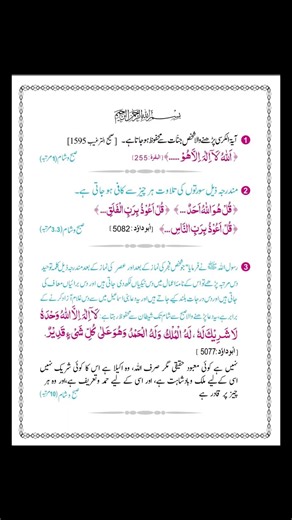 بسم الله الرحمن الرحيم
1 آیۃ الکرسی پڑھنے والا شخص جنات سے محفوظ ہو جاتا ہے۔ [صحیح الترغیب 1595]
﴿اَللّٰهُ لَآ اِلٰهَ اِلَّا هُوَ .....﴾ (البقرۃ: 255) صبح و شام (1 مرتبہ)
2 مندرجہ ذیل سورتوں کی تلاوت ہر چیز سے کافی ہو جاتی ہے۔
﴿قُلْ هُوَ اللّٰهُ اَحَدٌ...﴾ ﴿قُلْ اَعُوْذُ بِرَبِّ الْفَلَقِ...﴾
﴿قُلْ اَعُوْذُ بِرَبِّ النَّاسِ...﴾ [ابوداؤد: 5082] صبح و شام (3،3 مرتبہ)
3 رسول اللہ ﷺ نے فرمایا: جو شخص فجر کی نماز کے بعد اور عصر کی نماز کے بعد مندرجہ ذیل کلمہ توحید
دس مرتبہ پڑھے تو اس کے نامۂ اعمال میں دس نیکیاں لکھ دی جاتی ہیں اور دس برائیاں معاف کی
جاتی ہیں اور دس درجات بلند کیے جاتے ہیں
لَآ اِلٰهَ اِلَّا اللّٰهُ وَحْدَهٗ
لَا شَرِيْكَ لَهٗ، لَهُ الْمُلْكُ وَلَهُ الْحَمْدُ وَهُوَ عَلٰى كُلِّ شَيْءٍ قَدِيْرٌ.
[ابوداؤد: 5077]
نہیں ہے کوئی معبود حقیقی مگر صرف اللہ، وہ اکیلا ہے اس کا کوئی شریک نہیں
اسی کے لیے ملک و بادشاہت ہے، اور اسی کے لیے حمد و تعریف ہے، اور وہ ہر
چیز پر قادر ہے صبح و شام (10 مرتبہ)